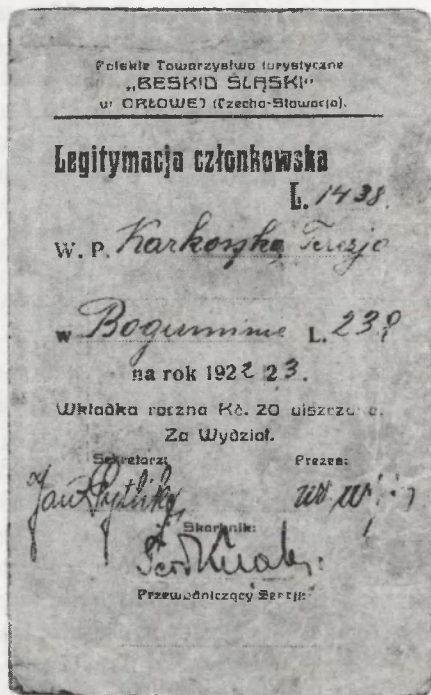 Polskie Towarzystwo turystyczne
„BESKID ŚLĄSKI"
w ORŁOWEJ (Czecho-Słowacja).
Legitymacja członkowska
L. 1438.
W. P. Karkoszka Teresja
w Boguminie L. 238
na rok 1922 23.
Wkładka roczna Kč. 20 uiszczona.
Za Wydział.
Sekretarz: Prezes:
Jan
Skarbnik:
Przewodniczący Sekcji: